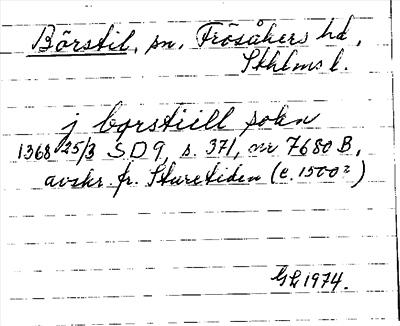 Börstil, sn. Frösåkers hd,
Sthlms l.
j borstiill sokn
1368 25/3 SD 9, s. 371, nr 7680 B,
avskr. fr. Sturetiden (e. 1500?)
GH 1974.